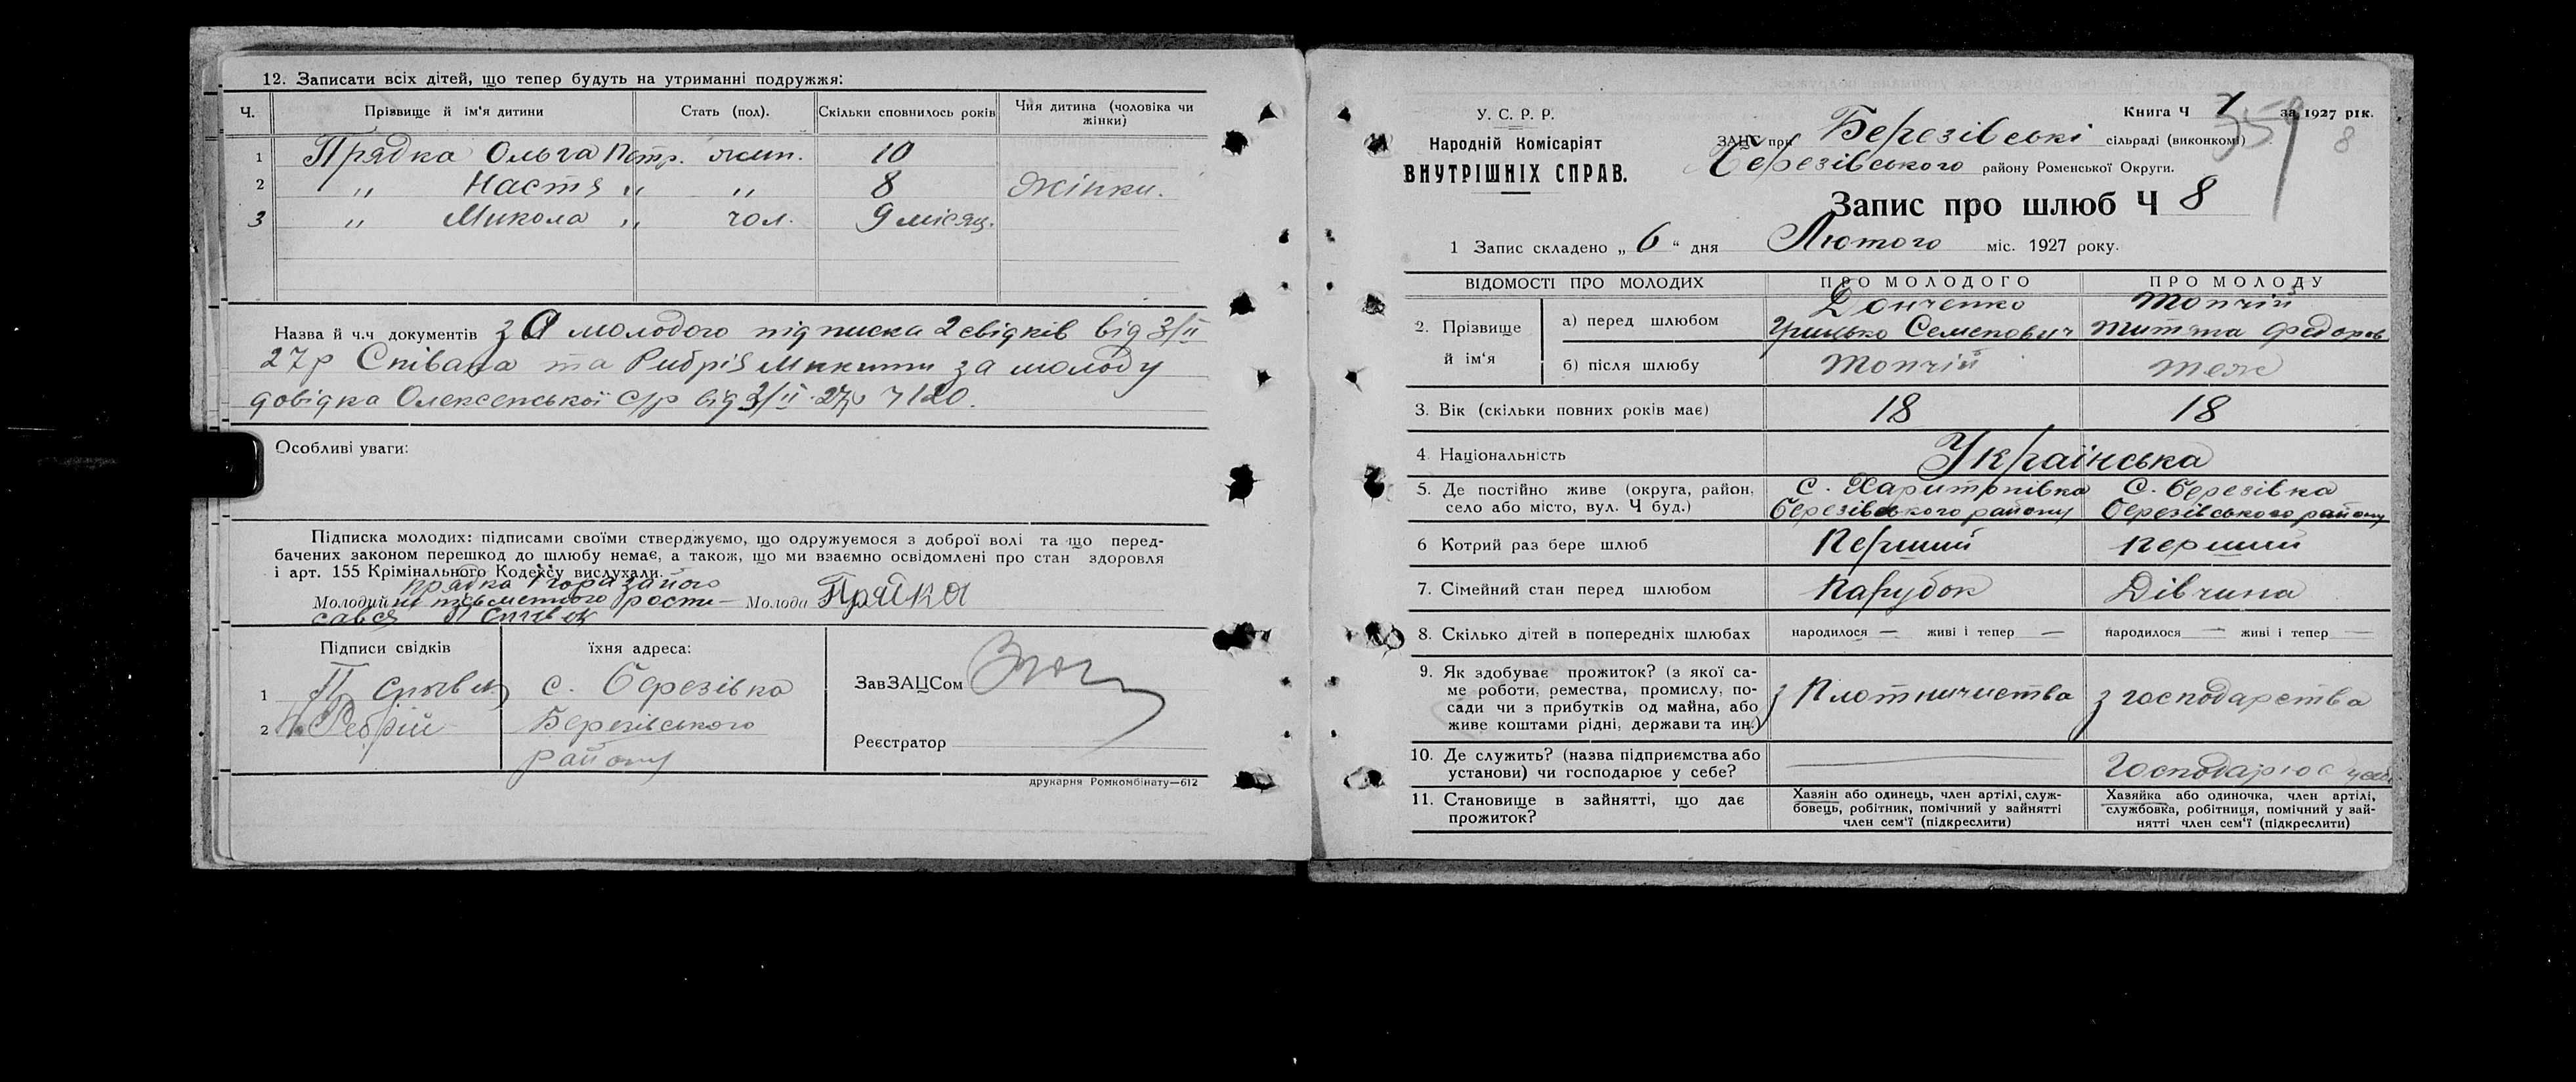 12. Записати всіх дітей, що тепер будуть на утриманні подружжя:
Ч. Прізвище й ім'я дитини Стать (пол). Скільки сповнилось років Чия дитина (чоловіка чи жінки)
1 Прядка Ольга Петр. жин. 10
2 „ Настя „ „ 8 жінки.
3 „ Микола „ чол. 9 місяц.
Назва й ч.ч документів за молодого підписка 2 свідків від 3/II
27р Співака та Ребрія Микити за молоду
довідка Олексенської с/р від 3/II 27р 7120.
Особливі уваги:
Підписка молодих: підписами своїми стверджуємо, що одружуємося з доброї волі та що перед-
бачених законом перешкод до шлюбу немає, а також, що ми взаємно освідомлені про стан здоровля
і арт. 155 Крімінального Кодексу вислухали.
Прядка за його
Молодий не письменного роспи- Молода Прядка
сався П Співак
Підписи свідків їхня адреса:
1 П Співак с. Березівка ЗавЗАЦСом
2 М. Ребрій Березівського
району Реєстратор
друкарня Ромкомбінату—612
У. С. Р. Р. Книга Ч 1 за 1927 рік.
Народній Комісаріят ЗАЦС при Березівські сільраді (виконкомі) 359 8
ВНУТРІШНІХ СПРАВ. Березівського району Роменської Округи.
Запис про шлюб Ч 8
1 Запис складено „ 6 “ дня Лютого міс. 1927 року.
ВІДОМОСТІ ПРО МОЛОДИХ ПРО МОЛОДОГО ПРО МОЛОДУ
2. Прізвище й ім'я а) перед шлюбом Донченко Грицько Семенович Топчій Федоров
б) після шлюбу Топчій теж
3. Вік (скільки повних років має) 18 18
4. Національність Українська
5. Де постійно живе (округа, район, с. Харитонівка с. Березівка
село або місто, вул. Ч буд.) Березівського району Березівського району
6 Котрий раз бере шлюб Перший перший
7. Сімейний стан перед шлюбом Парубок Дівчина
8. Скілько дітей в попередніх шлюбах народилося — живі і тепер — народилося — живі і тепер —
9. Як здобуває прожиток? (з якої са-
ме роботи, ремества, промислу, по-
сади чи з прибутків од майна, або з Плотничества з господарства
живе коштами рідні, держави та ин.)
10. Де служить? (назва підприємства або
установи) чи господарює у себе? — Господарює у себе
11. Становище в зайнятті, що дає прожиток? Хазяін або одинець, член артілі, служ-
бовець, робітник, помічний у зайнятті
член сем'ї (підкреслити)
Хазяйка або одиночка, член артілі,
службовка, робітниця, помічний у зай-
нятті член сем'ї (підкреслити)